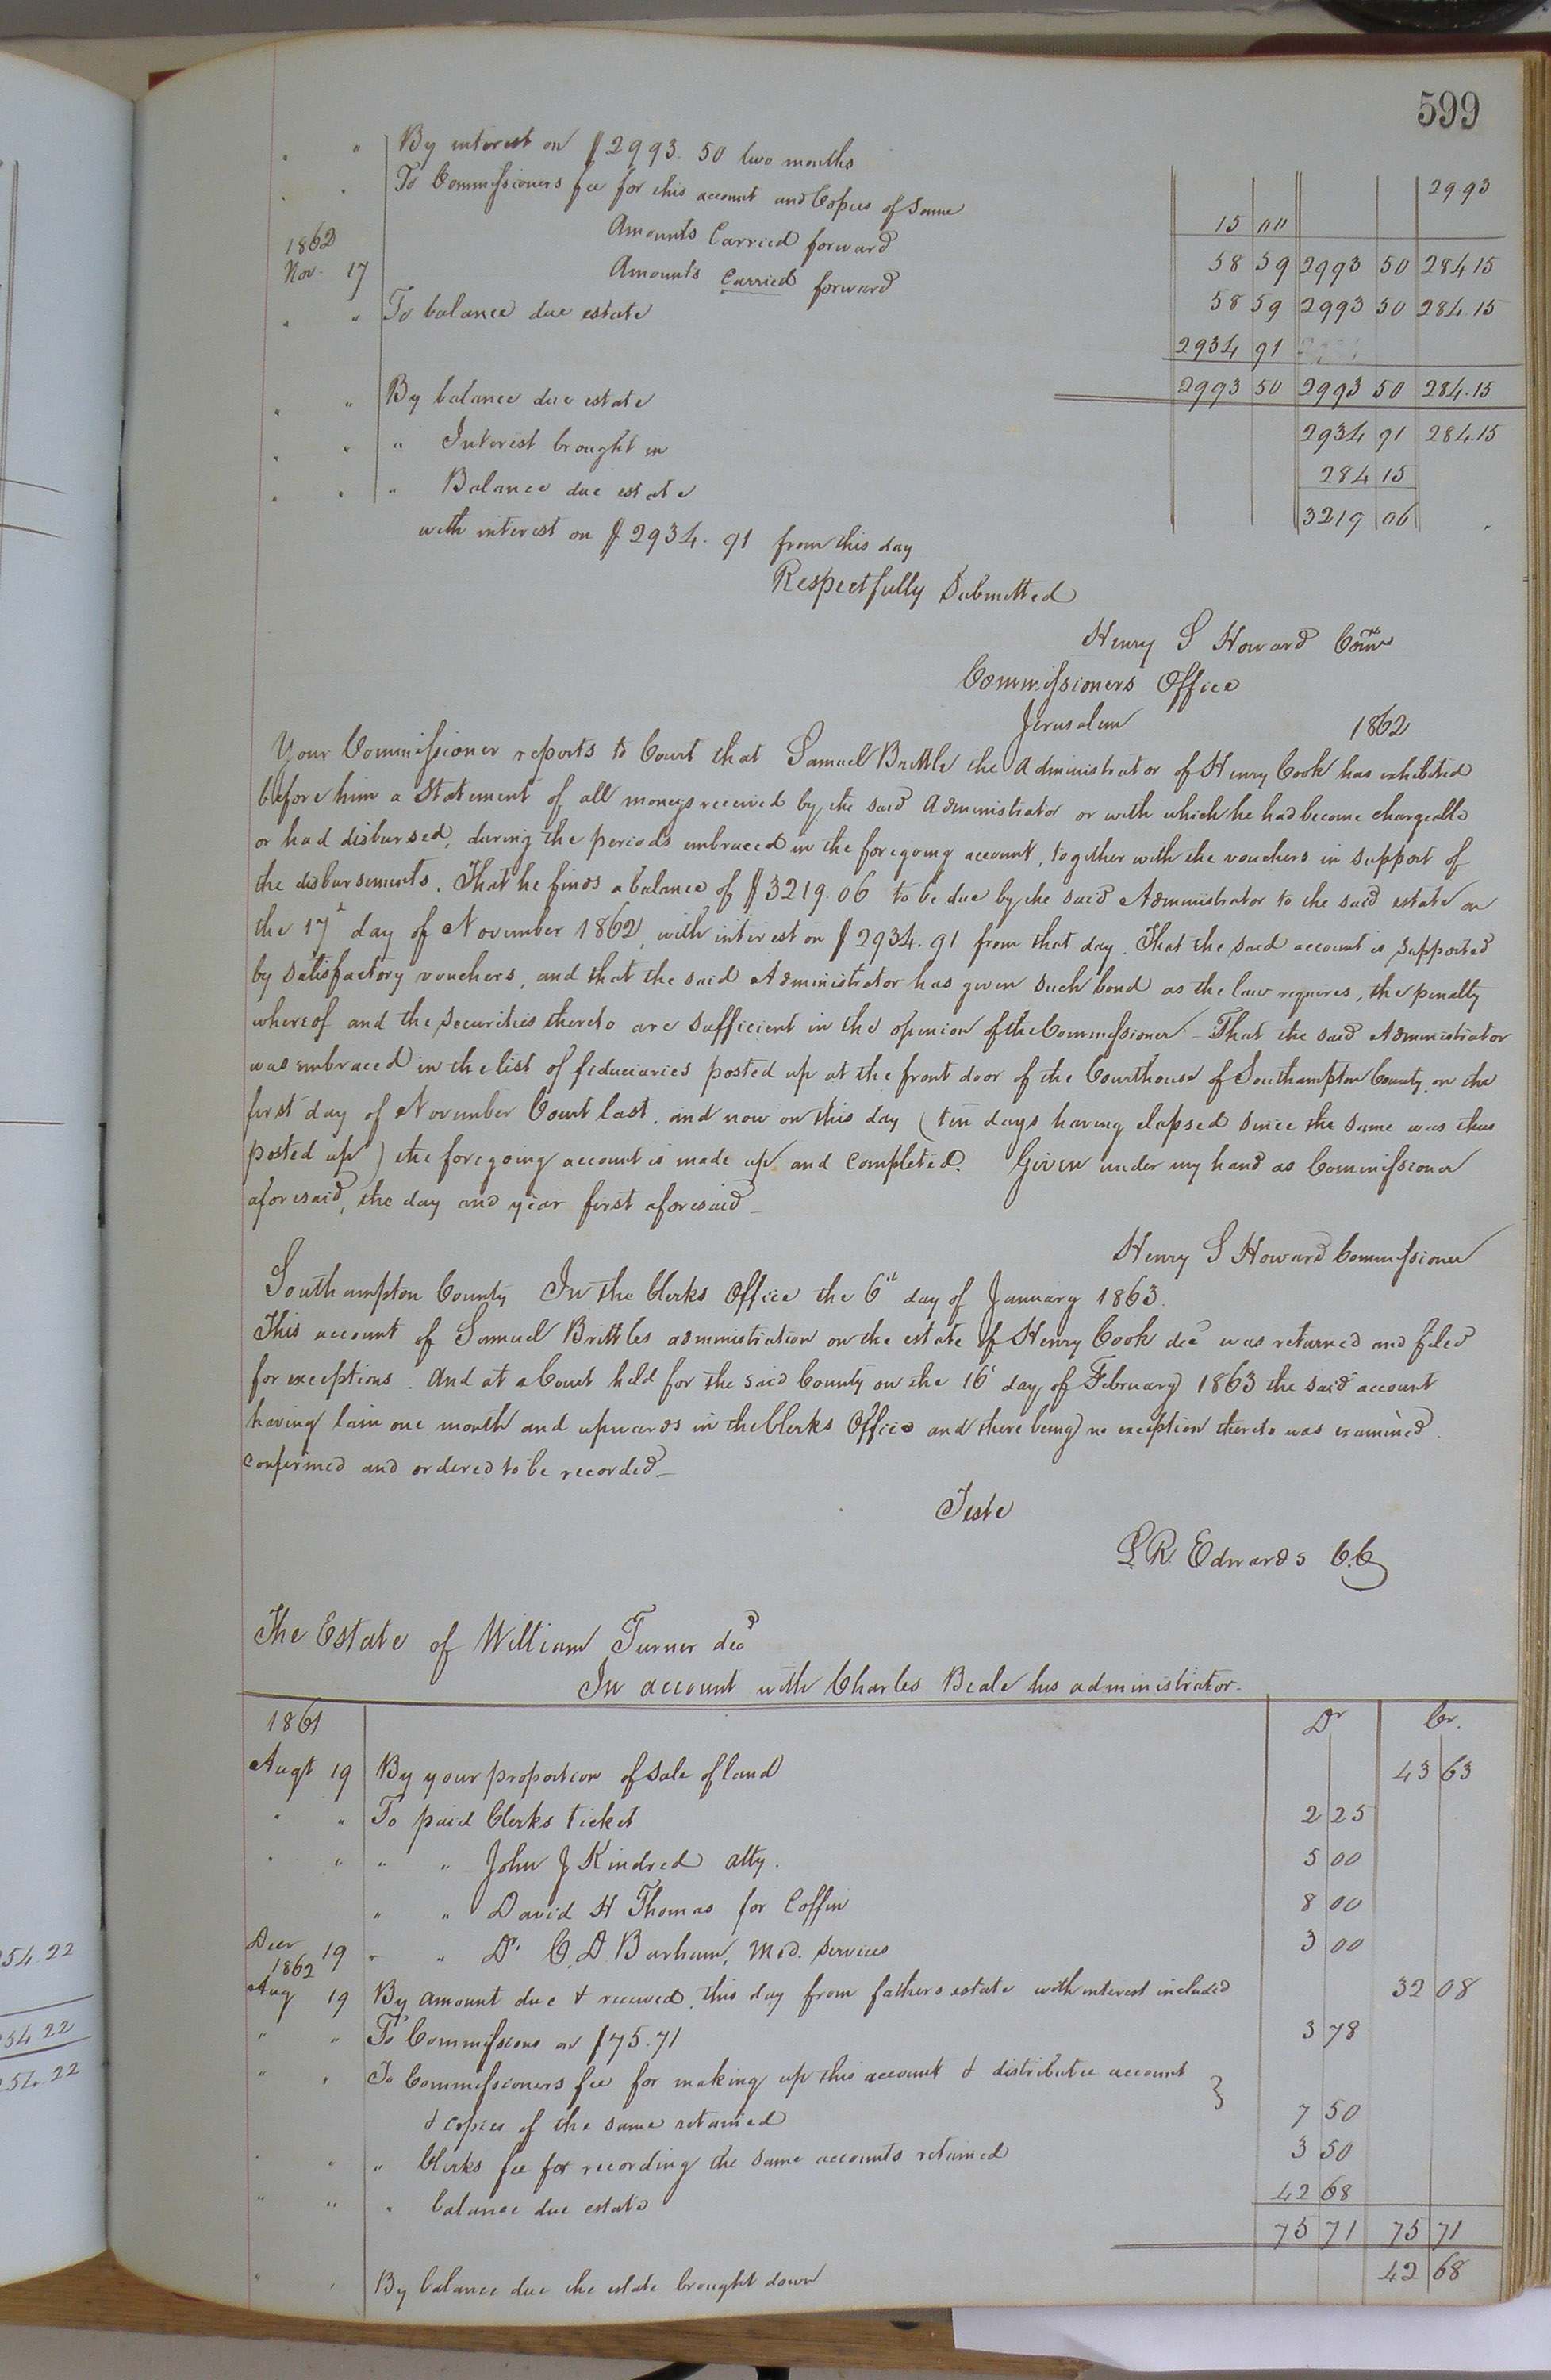 599
" " By interest on $2993.50 two months 2993
" " To Commissioners fee for this account and Copies of Same 15 00
Amounts Carried forward 58 59 2993 50 284.15
1862
Nov. 17 Amounts Carried forward 58 59 2993 50 284.15
" " To balance due estate 2934 91
2993 50 2993 50 284.15
" " By balance due estate 2934 91 284.15
" " " Interest brought in 284 15
" " " Balance due estate 3219 06
with interest on $2934.91 from this day
Respectfully Submitted
Henry S Howard Comr
Commissioners Office
Jerusalem 1862
Your Commissioner reports to Court that Samuel Brittle the Administrator of Henry Cook has exhibited
before him a Statement of all moneys received by the said Administrator or with which he had become chargeable
or had disbursed, during the periods embraced in the foregoing account, together with the vouchers in support of
the disbursements. That he finds a balance of $3219.06 to be due by the said Administrator to the said estate on
the 17th day of November 1862, with interest on $2934.91 from that day. That the said account is supported
by satisfactory vouchers, and that the said Administrator has given such bond as the law requires, the penalty
whereof and the securities thereto are sufficient in the opinion of the Commissioner - That the said Administrator
was embraced in the list of fiduciaries posted up at the front door of the Courthouse of Southampton County on the
first day of November Court last, and now on this day (ten days having elapsed since the same was thus
posted up) the foregoing account is made up and completed. Given under my hand as Commissioner
aforesaid, the day and year first aforesaid -
Henry S Howard Commissioner
Southampton County In the Clerks Office the 6th day of January 1863.
This account of Samuel Brittles administration on the estate of Henry Cook decd was returned and filed
for exceptions. And at a Court held for the said County on the 16th day of February 1863 the said account
having lain one month and upwards in the Clerks Office and there being no exception thereto was examined
confirmed and ordered to be recorded -
Teste
L.R. Edwards C.C.
The Estate of William Turner decd
In account with Charles Beale his administrator.
1861 Dr Cr.
Augt 19 By your proportion of sale of land 43 63
" " To paid Clerks ticket 2 25
" " " " John J Kindred atty. 5 00
" " David H Thomas for Coffin 8 00
Decr 19 " " Dr. C. D. Barham, Med. Services 3 00
1862
Aug 19 By amount due & received this day from fathers estate with interest included 32 08
" " To Commissions on $75.71 3 78
" " To Commissioners fee for making up this account & distributee account }
& copies of the same retained 7 50
" " " Clerks fee for recording the same accounts retained 3 50
" " " balance due estate 42 68
75 71 75 71
" " By balance due the estate brought down 42 68
54.22
54 22
54.22